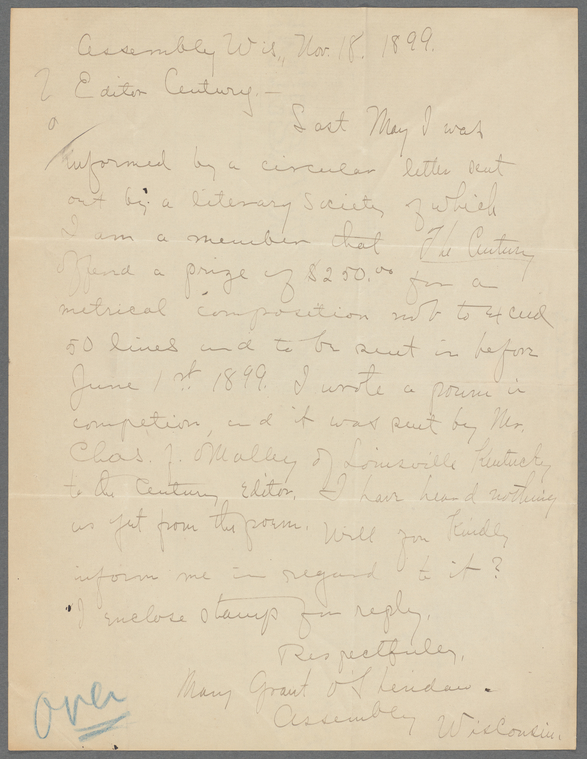 Assembly Wis., Nov. 18. 1899.
Editor Century.—
Last May I was
informed by a circular letter sent
out by a literary society of which
I am a member that The Century
offered a prize of $250.00 for a
metrical composition not to exceed
50 lines and to be sent in before
June 1st 1899. I wrote a poem in
competion, and it was sent by Mr.
Chas. J. O'Malley of Louisville Kentucky
to the Century Editor. I have heard nothing
as yet from the poem. Will you kindly
inform me in regard to it?
I enclose stamp for reply.
Respectfully,
Mary Grant O'Sheridan.
Assembly
Wisconsin.
over